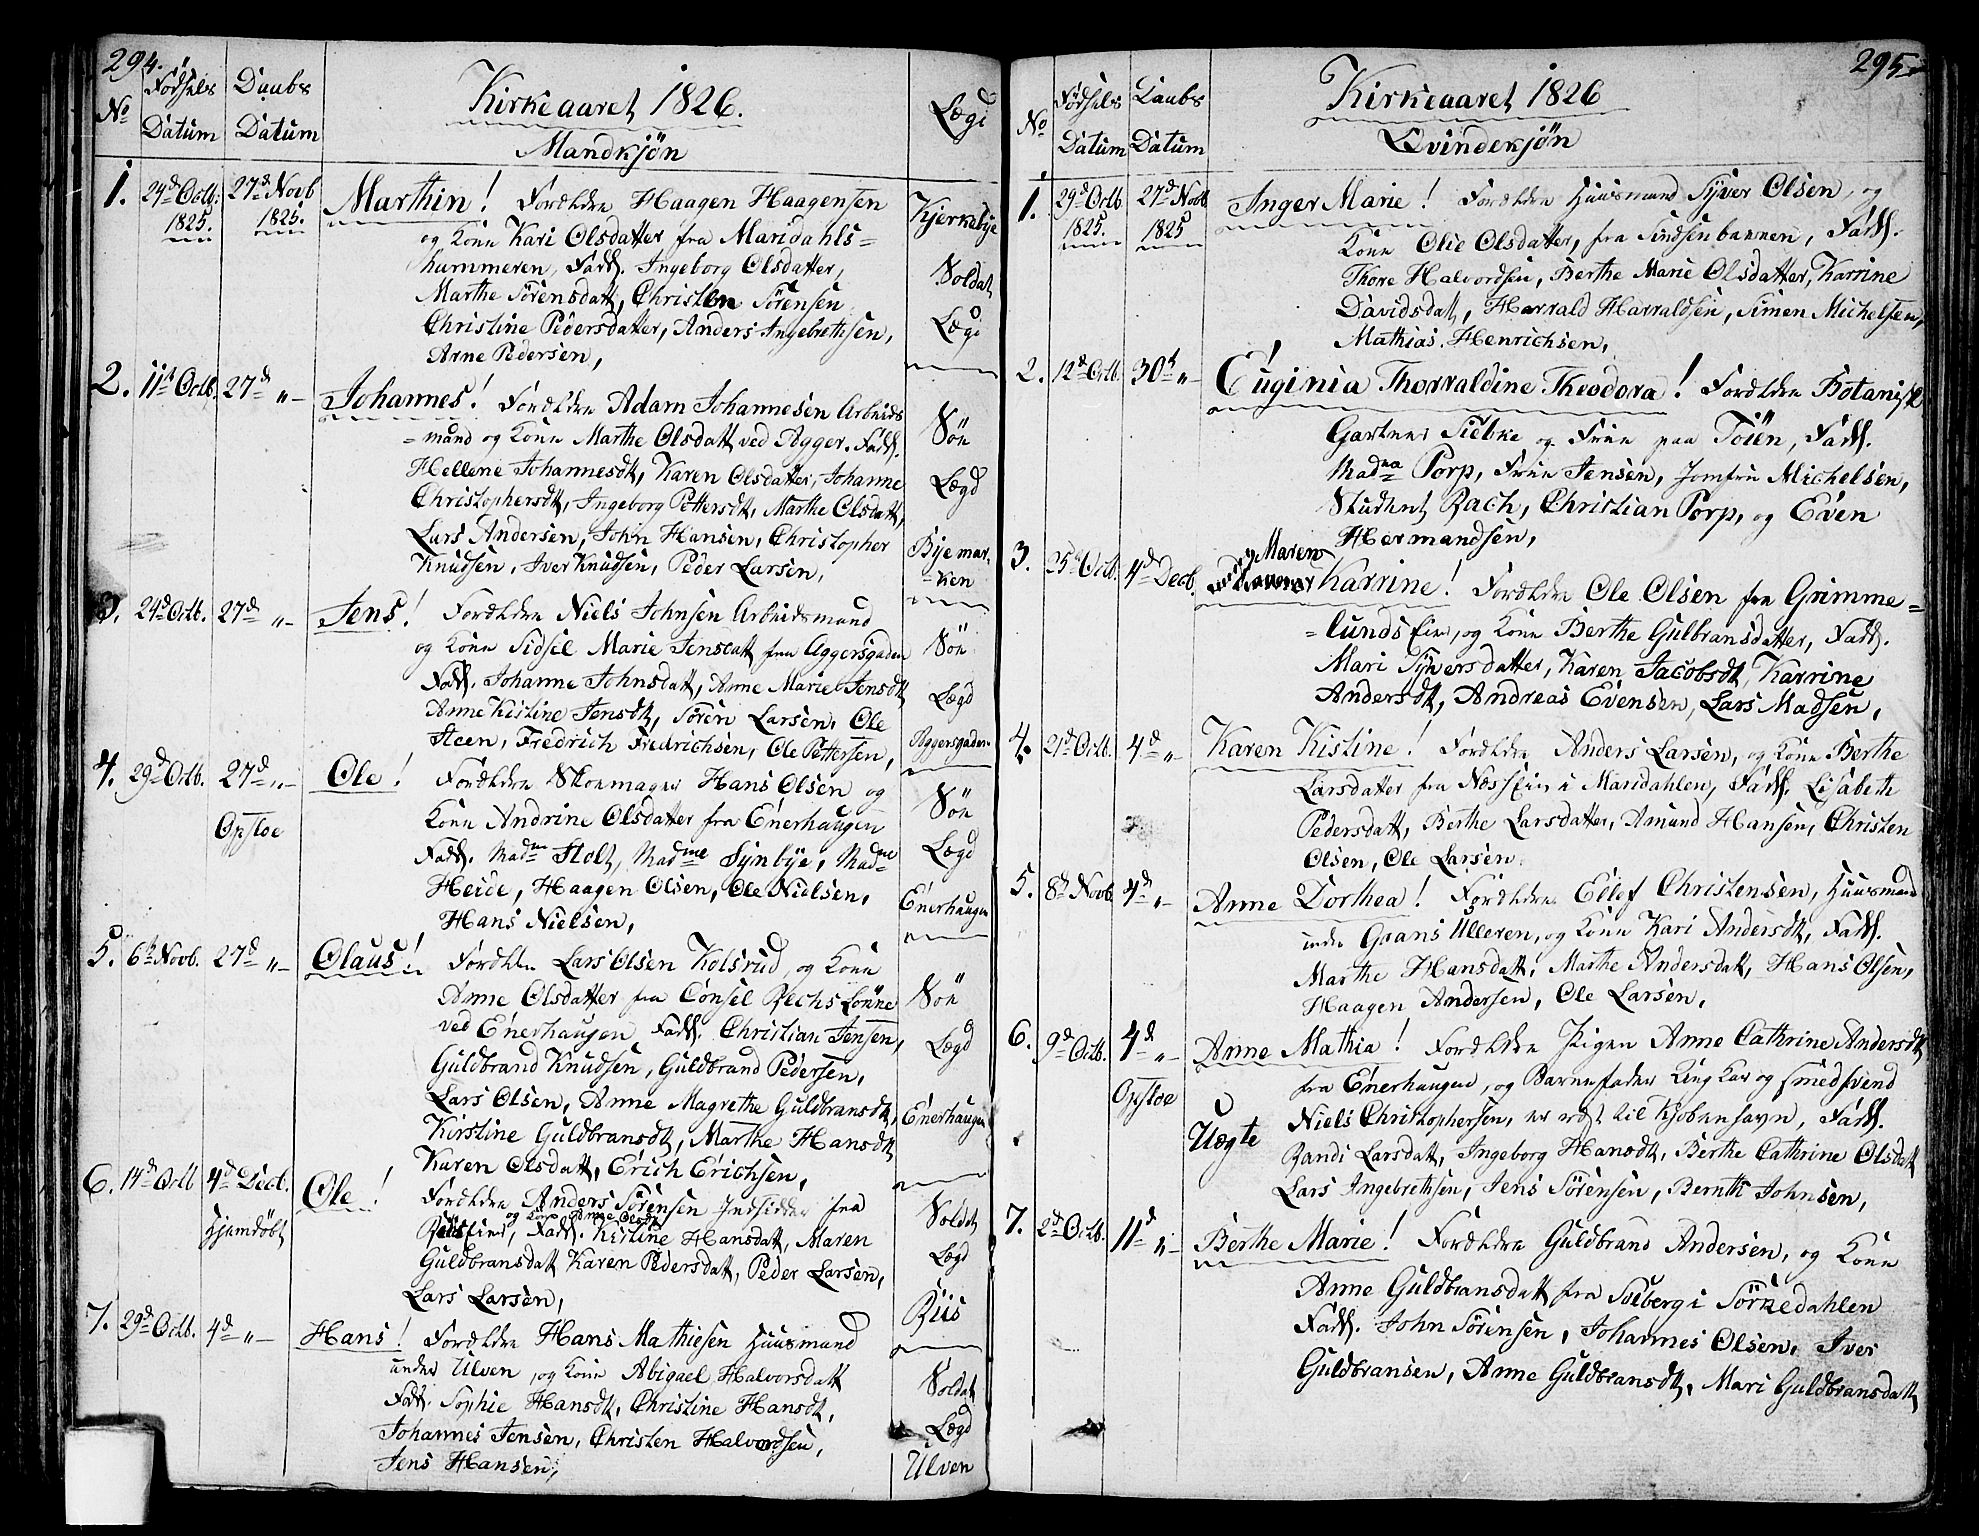 294.
No Födsels Datum Daabs Datum Kirkeaaret 1826. Lægd
Mandkjön
1. 24d Octb: 1825. 27d Novb 1825. Marthin! Forældre Haagen Haagensen Kjerkebye
og Kone Kari Olsdatter fra Maridahls=
hammeren, Fadd. Ingeborg Olsdatter, Soldat
Marthe Sörensdatt, Christen Sörensen
Christine Pedersdatter, Anders Ingebrethsen, Lægd
Arne Pedersen,
2. 11te Octb. 27d „ Johannes! Forældre Adam Johannesen Arbeids
=mand og Kone Marthe Olsdatt ved Agger. Fadd. Sön
Hellene Johannesdt, Karen Olsdatter, Johanne
Christophersdt, Ingeborg Pettersdt, Marthe Olsdatt, Lægd
Lars Andersen, John Hansen, Christopher
Knudsen, Iver Knudsen, Peder Larsen, Byemar
=ken
3. 24d Octb. 27d „ Jens! Forældre Niels Johnsen Arbeidsmand
og Kone Sidsel Marie Jensdatt fra Aggersgaden Sön
Fadd. Johanne Johnsdatt, Anne Marie Jensdt Lægd
Anne Kistine Jensdt, Sören Larsen, Ole
Steen, Fredrich Fredrichsen, Ole Pettersen, Aggersgaden
4. 29d Octb. 27d „ Ole! Forældre Skoemager Hans Olsen og
Opsloe Kone Andrine Olsdatter fra Enerhaugen Sön
Fadd. Madme Holt, Madme Synbye, Madme Lægd
Heide, Haagen Olsen, Ole Nielsen, Enerhaugen
Hans Nielsen,
5. 6te Novb. 27d „ Olaus! Forældre Lars Olsen Kolsrud, og Kone
Anne Olsdatter fra Consel Rechs Lönne Sön
ved Enerhaugen Fadd. Christian Jensen,
Guldbrand Knudsen, Guldbrand Pedersen, Lægd
Lars Olsen, Anne Magrethe Guldbransdt,
Kirstine Guldbransdt, Marthe Hansdt Enerhaugen
Karen Olsdatt, Erich Erichsen,
6. 14d Octb 4d Decb. Ole! Forældre Anders Sörensen Indsidder fra Soldat
Hjemdöbt og Kone Anne Olsdt
Riis Eier, Fadd. Kistine Hansdatt, Maren
Guldbransdatt Karen Pedersdatt, Peder Larsen, Lægd
Lars Larsen, Riis
7. 29d Octb. 4d „ Hans! Forældre Hans Mathiesen Huusmand
under Ulven, og Kone Abigael Halvorsdatt Soldat
Fadd. Sophie Hansdt, Christine Hansdt,
Johannes Jensen, Christen Halvordsen, Lægd
Jens Hansen, Ulven
295.
No Födsels Datum Daabs Datum Kirkeaaret 1826
Qvindekjön
1. 29d Octb 1825. 27d Novb 1825 Inger Marie! Forældre Huusmand Syver Olsen, og
Kone Olie Olsdatter, fra Sindsenbannen, Fadd.
Thore Halvordsen, Berthe Marie Olsdatter, Karrine
Davidsdat, Harrald Harraldsen, Simen Michelsen,
Mathias Henrichsen,
2. 12d Octb. 30te „ Euginia Thorvaldine Theodora! Forældre Botanisk
Gartner Siebke og Frue paa Töien, Fadd.
Madme Porp, Frue Jensen, Jomfru Michelsen,
Student Rach, Christian Porp, og Even
Hermandsen,
3. 25d Octb. 4d Decb. Maren Karrine! Forældre Ole Olsen fra Grimme=
=lunds Eie, og Kone Berthe Gulbransdatter, Fadd.
Mari Syversdatter, Karen Jacobsdt, Karrine
Andersdt, Andreas Evensen, Lars Madsen,
4. 21d Octb. 4d „ Karen Kistine! Forældre Anders Larsen, og Kone Berthe
Larsdatter fra Næs Eie i Maridahlen, Fadd. Lisabeth
Pedersdatt, Berthe Larsdatter, Amund Hansen, Christen
Olsen, Ole Larsen.
5. 8de Novb. 4d „ Anne Dorthea! Forældre Ellef Christensen, Huusmand
under Graans Ulleren, og Kone Kari Andersdt, Fadd.
Marthe Hansdatt, Marthe Andersdatt, Hans Olsen,
Haagen Andersen, Ole Larsen,
6. 9d Octb. 4d „ Anne Mathia! Forældre Pigen Anne Cathrine Andersdt
Opsloe fra Enerhaugen, og Barnefader Ung Kar og Smedsvend
Uægte Niels Christophersen, er rejst til Kjöbenhavn, Fadd.
Randi Larsdatt, Ingeborg Hansdt, Berthe Cathrine Olsdatt
Lars Ingebrethsen, Jens Sörensen, Bernth Johnsen,
7. 2d Octb. 11d „ Berthe Marie! Forældre Guldbrand Andersen, og Kone
Anne Guldbransdatt fra Solberg i Sörkedahlen
Fadd. John Sörensen, Johannes Olsen, Iver
Guldbransen, Anne Guldbransdt, Mari Guldbransdatt